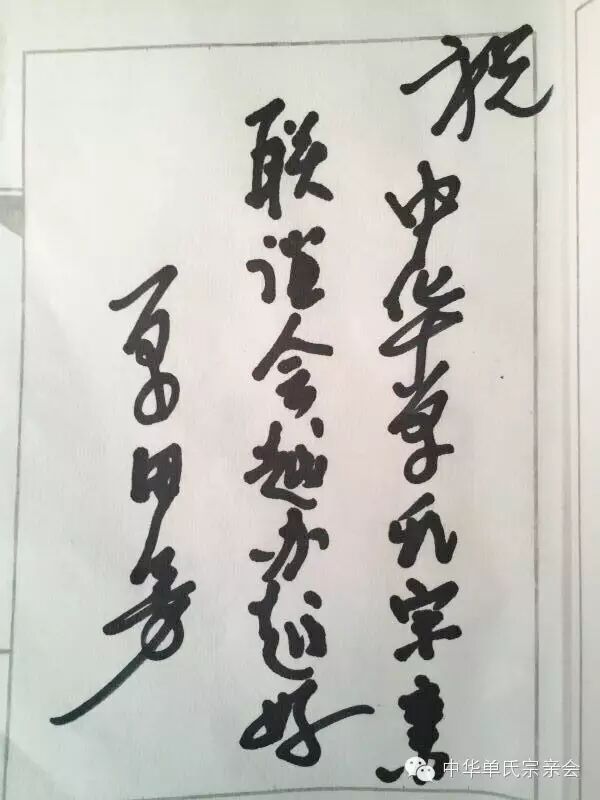 祝中华单氏宗亲
联谊会越办越好
单田芳
中华单氏宗亲会